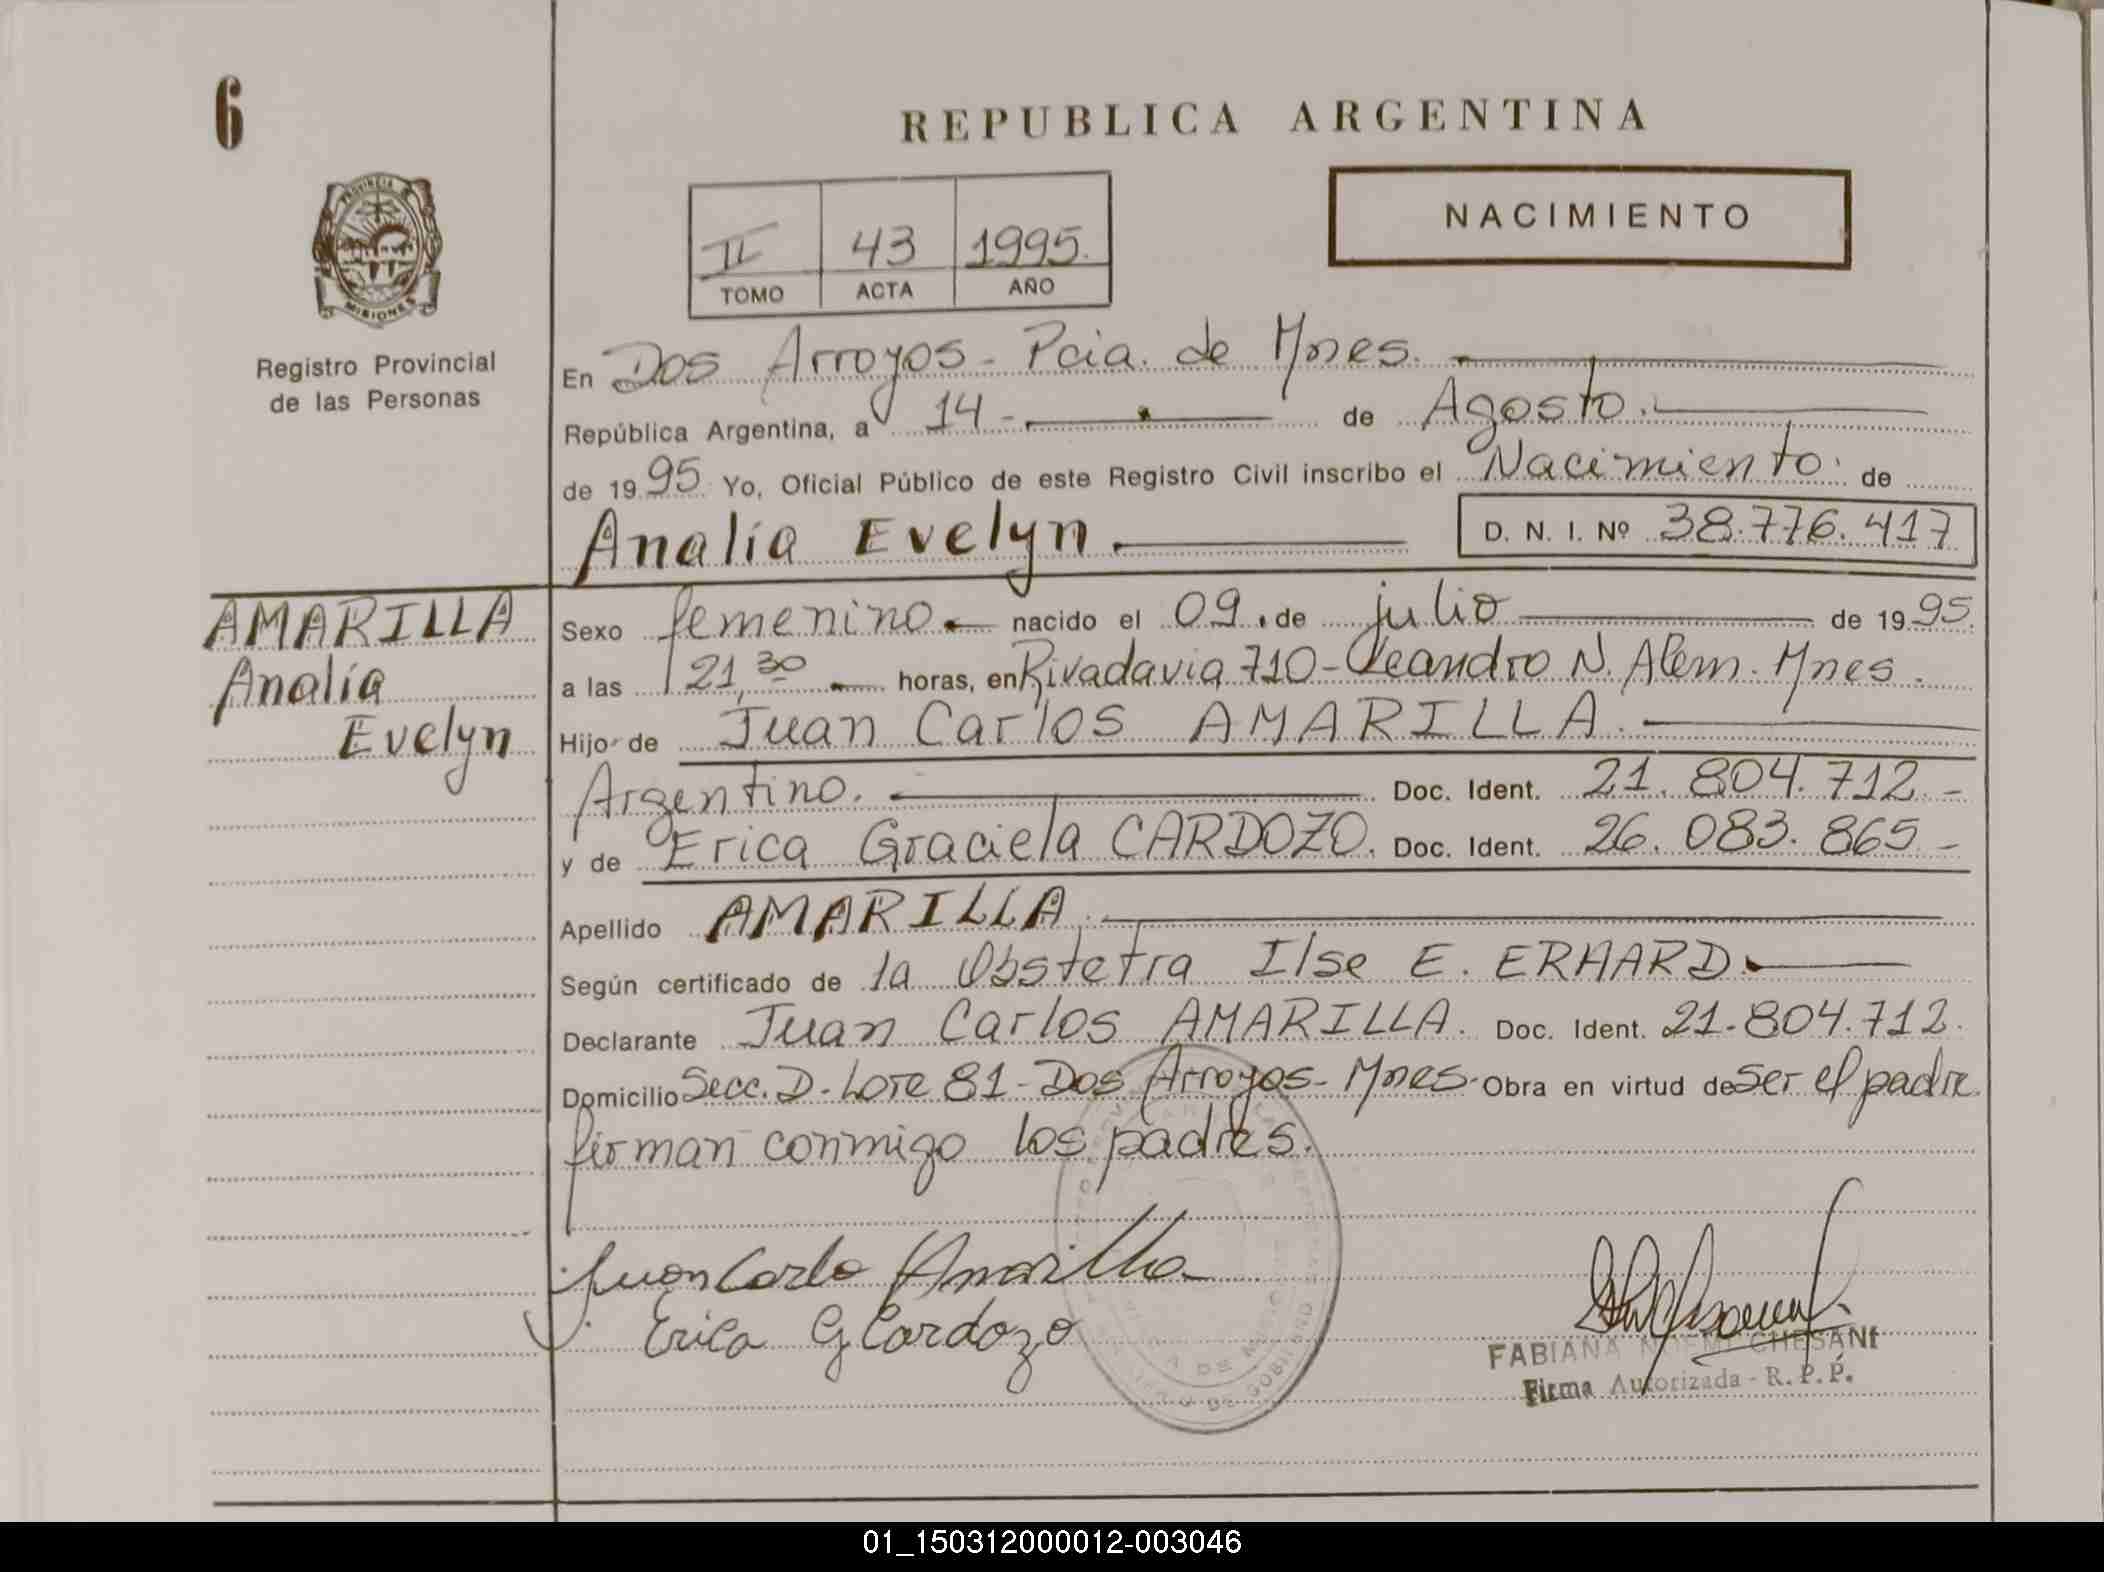 6
REPUBLICA ARGENTINA
NACIMIENTO
II 43 1995.
TOMO ACTA AÑO
PROVINCIA DE
MISIONES
Registro Provincial
de las Personas
En Dos Arroyos - Pcia. de Mnes.
República Argentina, a 14 - de Agosto.
de 1995 Yo, Oficial Público de este Registro Civil inscribo el Nacimiento. de
Analía Evelyn. D. N. I. Nº 38.776.417
AMARILLA
Analía
Evelyn
Sexo femenino nacido el 09. de julio de 1995.
a las 21,30 horas, en Rivadavia 710 - Leandro N. Alem. Mnes.
Hijo de Juan Carlos AMARILLA.
Argentino. Doc. Ident. 21.804.712.-
y de Erica Graciela CARDOZO. Doc. Ident. 26.083.865.-
Apellido AMARILLA.
Según certificado de la Obstetra Ilse E. ERHARD.
Declarante Juan Carlos AMARILLA. Doc. Ident. 21.804.712.
Domicilio Secc. D. Lote 81 - Dos Arroyos - Mnes. Obra en virtud de ser el padre
firman conmigo los padres.
Juan Carlo Amarilla
Erica G Cardozo
FABIANA NOEMI CHESANI
Firma Autorizada - R. P. P.
01_150312000012-003046